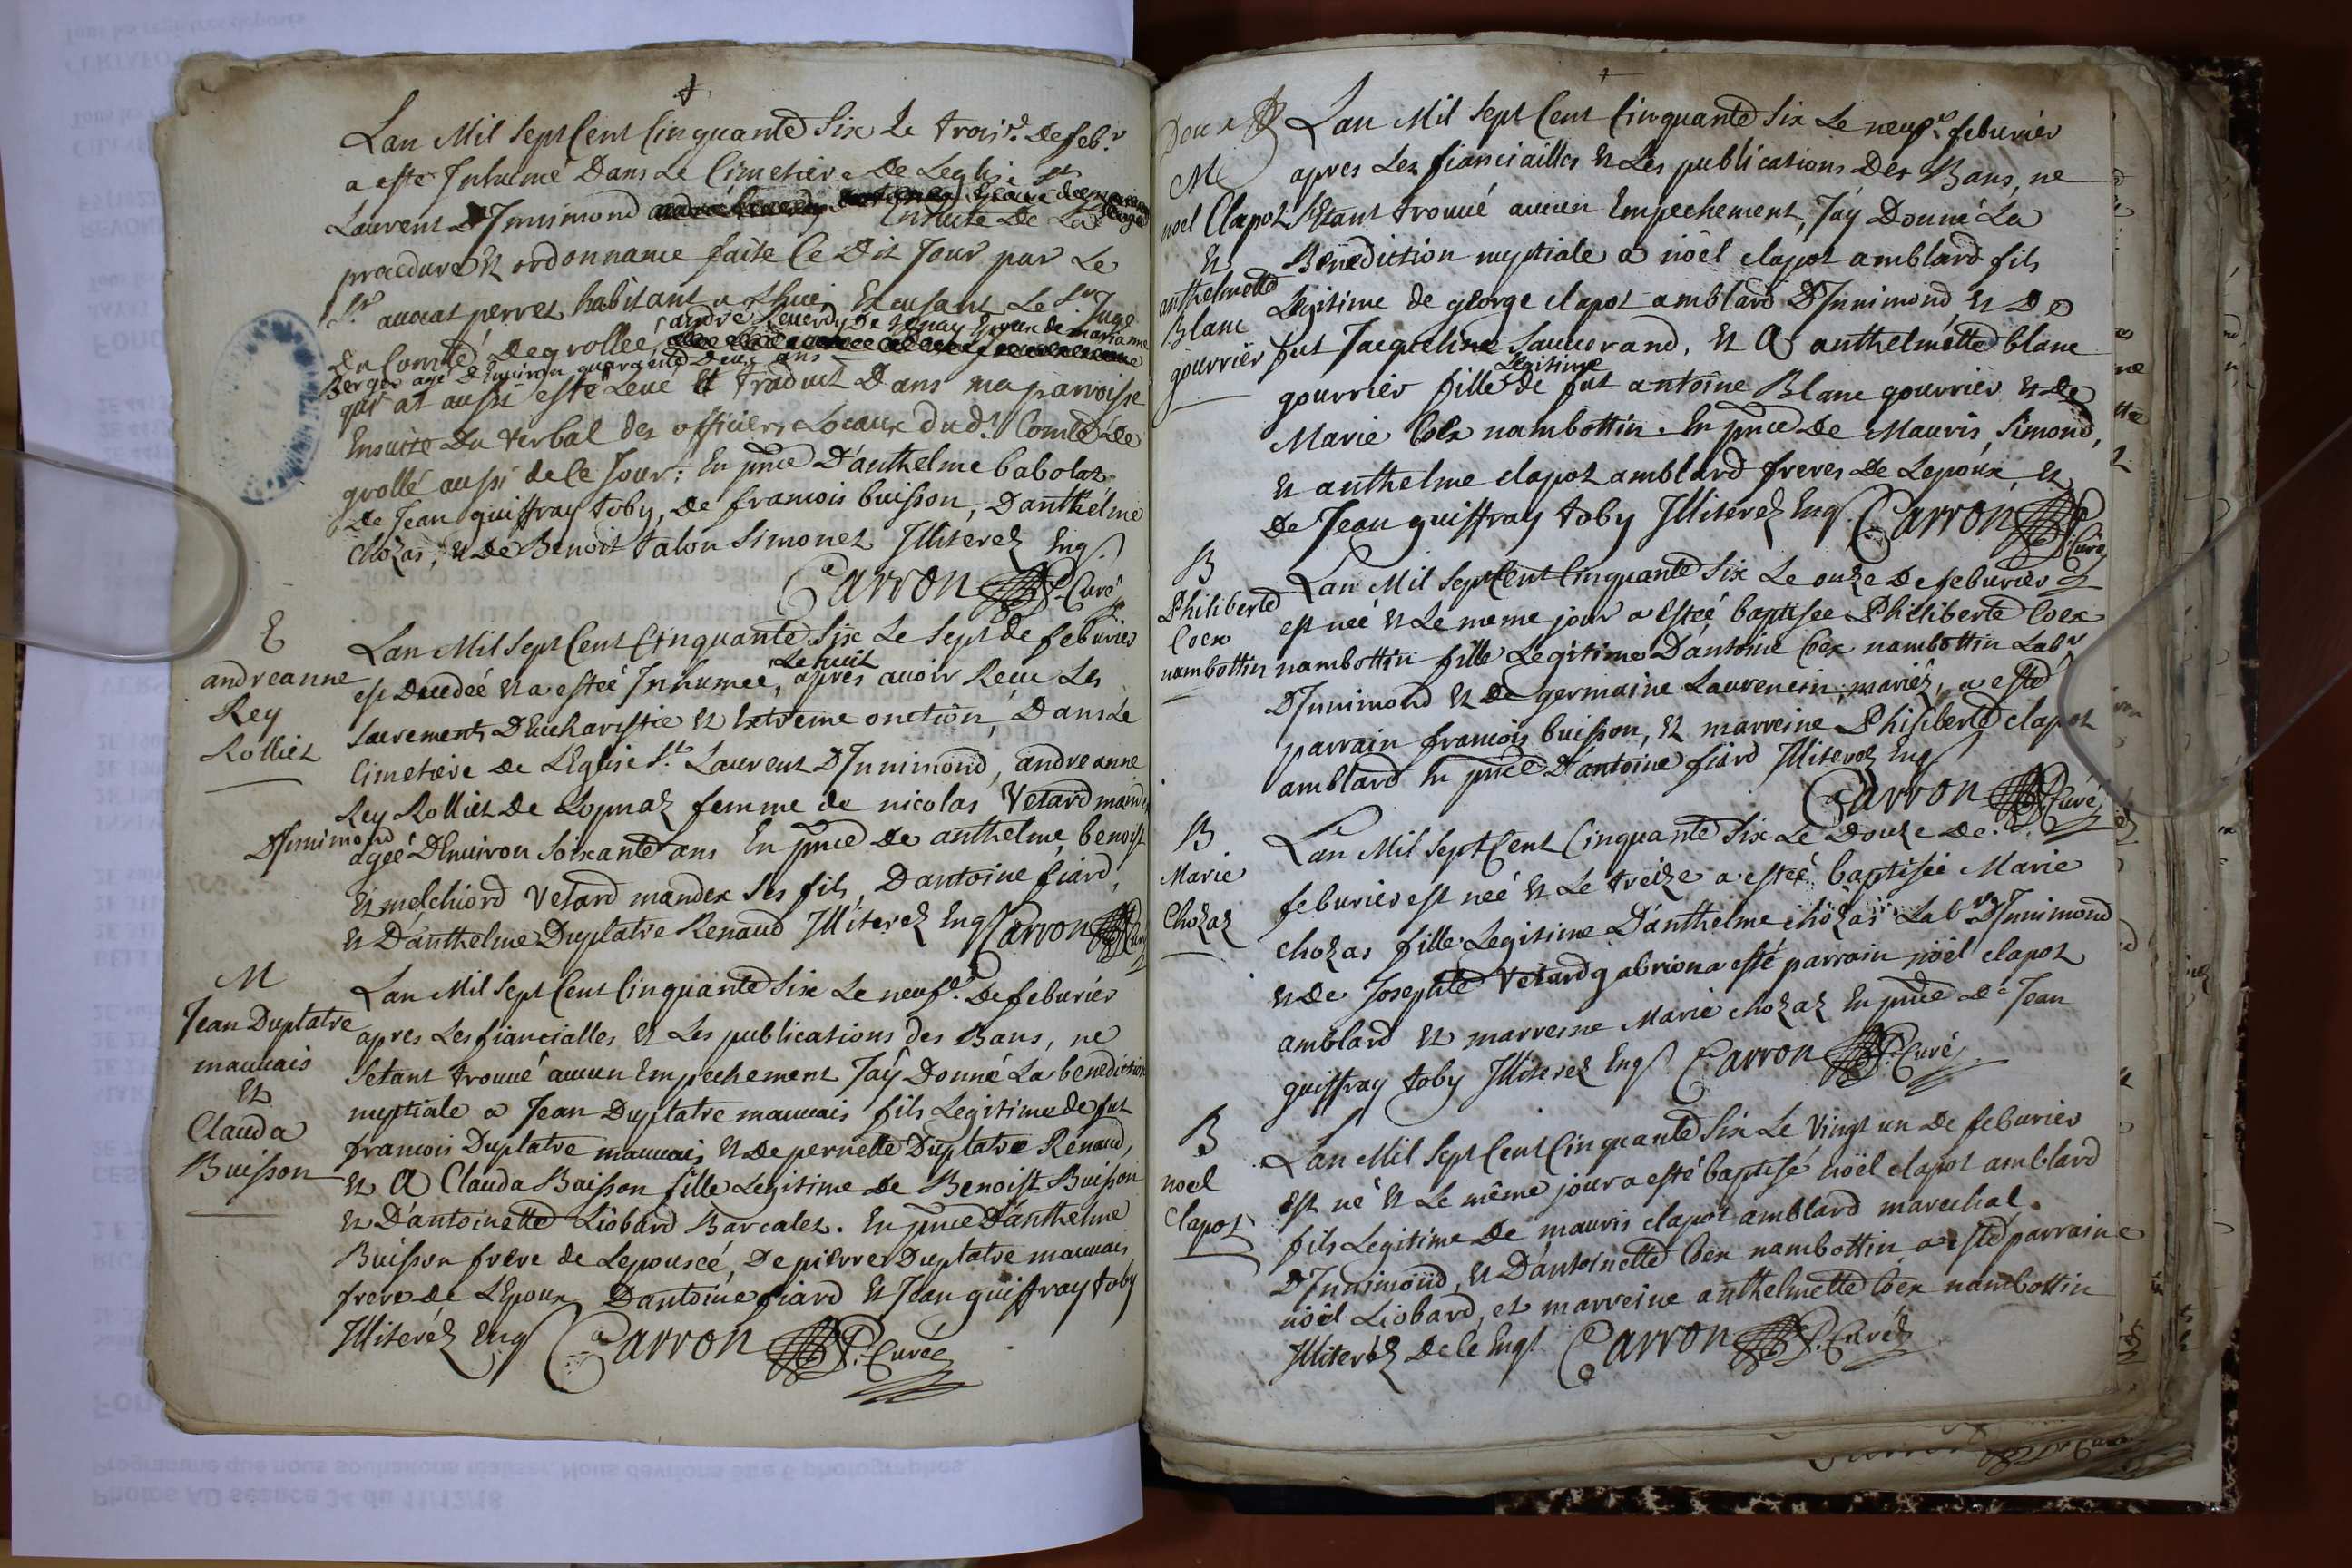 Lan Mil Sept Cent Cinquante Six Le trois.e De feb.r
a esté Inhumé Dans Le Cimetiere De Leglise St
Laurent D'Innimond Ensuite De La
procedure Et ordonnance faite Ce Dit Jour par Le
Sr. auocat perret habitant a Lhuis, Excusant Le Sr Juge
Du Comté De grollee, andré Reuerdy De tenay Epoux de marianne
Berger agé D'Enuiron quarante Deux ans
qui at aussi esté Leué Et traduit Dans ma parroisse
Ensuite Du Verbal des officiers Locaux dud.t Comté De
grollé aussi de Ce Jour: En pnce D'anthelme babolat
De Jean guiffray toby, De francois buisson, D'anthélme
Chozas, Et De Benoit talon Simonet Illiterez Enq.s
Carron P. Curé
E
andreanne
Rey
Rolliet
D'Innimond
Lan Mil Sept Cent Cinquante Six Le Sept de feburier
est Decedeé Et a estée Inhumée, Le huit apres auoir Recu Les
Sacrements D'Eucharistie Et Extreme onction, Dans Le
Cimetiere De L'Eglise St. Laurent D'Innimond, andreanne
Rey Rolliet De Lopnaz femme de nicolas Vetard mandex
agéé D'Enuiron Soixante ans En pnce De anthelme, benoist
Et melchiord Vetard mandex Ses fils, D'antoine fiard,
Et D'anthelme Duplatre Renaud Illiterez Enqs Carron Curé
M
Jean Duplatre
mauuais
Et
Clauda
Buisson
Lan Mil Sept Cent Cinquante Six Le neuf.e De feburier
apres Les fiancialles Et Les publications des Bans, ne
Setant trouué aucun Empechement Jaÿ Donné La benediction
nuptiale a Jean Duplatre mauuais fils Legitime de fut
francois Duplatre mauuais Et De pernette Duplatre Renaud,
Et A Clauda Buisson fille Legitime De Benoist Buisson
Et D'antoinette Liobard Barcalet. En pnce D'anthelme
Buisson frere de Lepouseé, De piérre Duplatre mauuais
frere De L'Epoux D'antoine fiard Et Jean guiffray toby
Illiteréz Enqs Carron P. Curé
Lan Mil Sept Cent Cinquante Six Le neuf.e feburier
M
noel Clapot
Et
anthelmette
Blanc
gourrier
apres Les fianciailles Et Les publications Des Bans, ne
S'Etant trouué aucun Empechement, J'aÿ Donné La
Bénédiction nuptiale a nöel clapot amblard fils
Legitime de george clapot amblard D'Innimond, Et De
fut Jacqueline Sauuorand. Et A anthelmétte blanc
gourrier fille Legitime De fut antoine Blanc gourrier Et De
Marie Coex nambottin. En pnce De Mauris, Simond,
Et anthelme clapot amblard freres De Lepoux, Et
De Jean guiffray toby Illiterez Enqs. Carron P. Curé
B
Philiberte
Coex
nambottin
Lan Mil Sept Cent Cinquante Six Le onze De feburier
est neé Et Le meme jour a esteé baptisee Philiberte Coex
nambottin fille Legitime D'antoine Coex nambottin Labr
D'Innimond Et De germaine Laurencin, mariéz, a esté
parrain francois buisson, Et marreine Philiberte clapot
amblard En pnce D'antoine fiard Illiterez Enqs
Carron P. Curé
B
Marie
Chozaz
Lan Mil Sept Cent Cinquante Six Le Douze De
feburier est neé Et Le treize a esteé baptiseé Marie
chozas fille Legitime D'anthelme chozas Labr D'Innimond
Et De Josephte Vetard gabrion a esté parrain nöel clapot
amblard Et marreine Marie chozaz En pnce De Jean
guiffray toby Illiterez Enqs Carron P. Curé
B
noel
Clapot
Lan Mil Sept Cent Cinquante Six Le Vingt un De feburier
est né Et Le même jour a esté baptisé nöel clapot amblard
fils Legitime De mauris clapot amblard marechal
D'Innimond, Et D'antoinette Coex nambottin a esté parraine
nöel Liobard, et marreine anthelmette Coex nambottin
Illiteréz De Ce Enqs Carron P. Curé